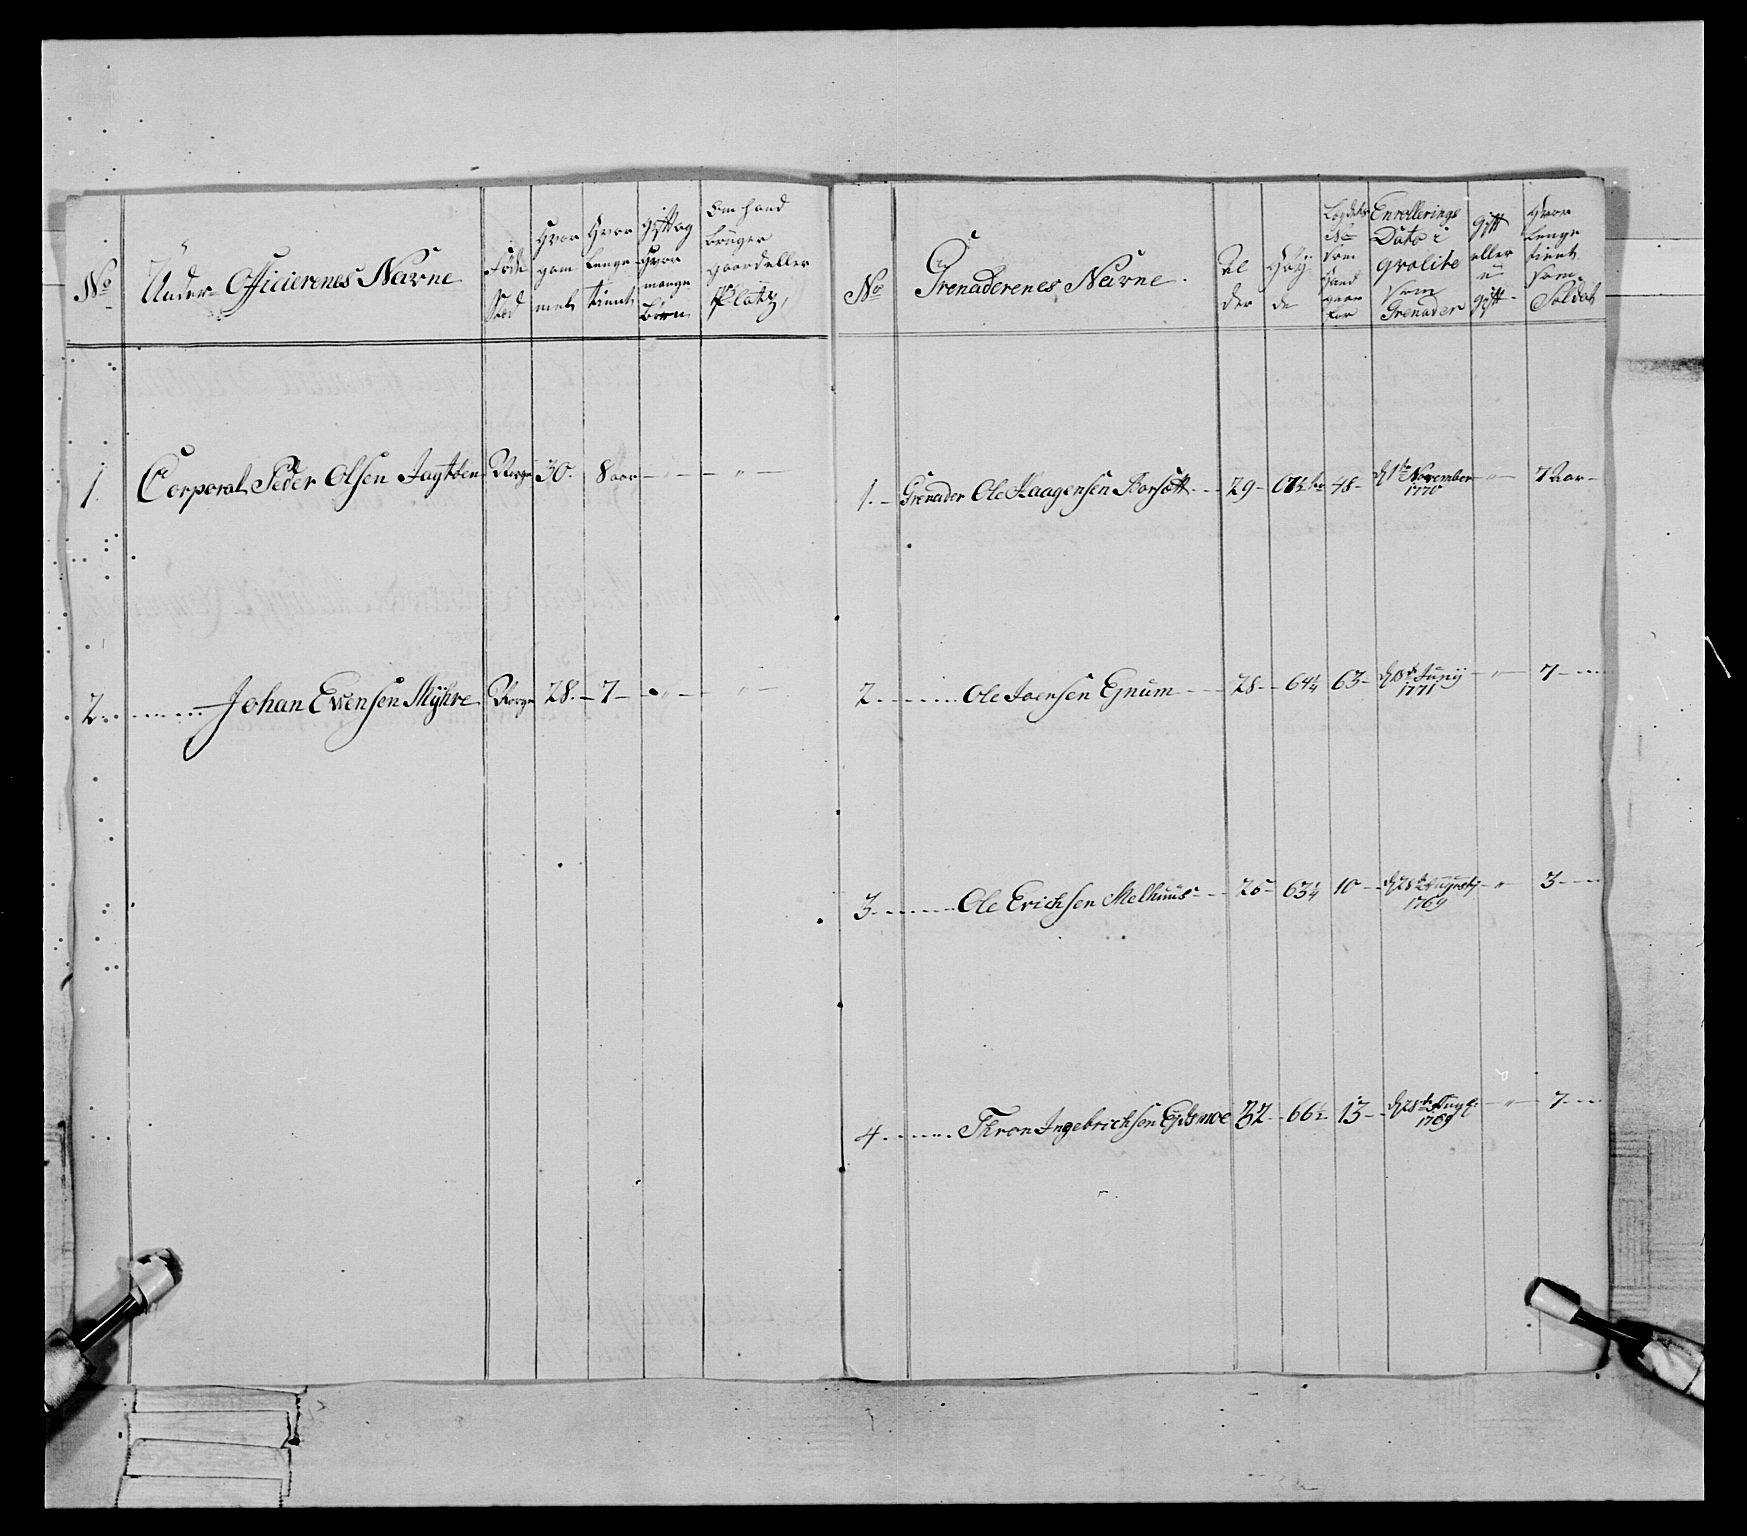 No
Under-Officierenes Navne
Føde Stæd
Hvor gammel
Hvor lenge tient
gift og hvor mange børn
Om hand bruger gaard eller Platz,
1. Corporal Peder Olsen Jagtøen Norge 30. 8 aar — " — — " —
2. Johan Evensen Myhre Norge 28. — 7 — — " — — " —
No
Grenaderenes Navne.
Al der
Høy de
Legdets No som hand gaar for
Enrollerings Dato i qvalite som Grenader
gift eller ugift
Hvor lenge tient som Soldat
1. Grenader Ole Haagensen 29 48 d 1te November 1770 " 7 Aar
2. Ole Joensen Egnum 28 64 1/4 63 Junij 1771 " 7
3. Ole Erichsen Melhuus 26 63 1/4 10 d 28de Augustij 1769 " 3
4. Thron Ingebrichsen Eydsmoe 32 66 1/2 13 d 28de Aug: 1769 " 7